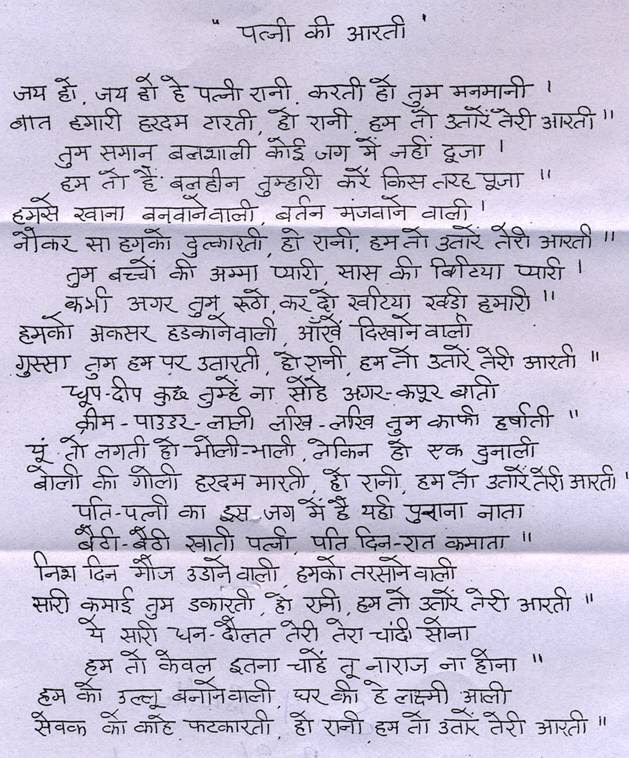 " पत्नी की आरती "
जय हो, जय हो हे पत्नी रानी, करती हो तुम मनमानी ।
बात हमारी हरदम टारती, हो रानी, हम तो उतारें तेरी आरती ॥
तुम समान बलशाली कोई जग में नहीं दूजा ।
हम तो हैं बलहीन तुम्हारी करें किस तरह पूजा ॥
हमसे खाना बनवानेवाली, बर्तन मंजवाने वाली ।
नौकर सा हमको दुत्कारती, हो रानी, हम तो उतारें तेरी आरती ॥
तुम बच्चों की अम्मा प्यारी, सास की बिटिया प्यारी ।
कभी अगर तुम रूठो, कर दो खटिया खड़ी हमारी ॥
हमको अकसर हडकानेवाली, आँखें दिखानेवाली
गुस्सा तुम हम पर उतारती, हो रानी, हम तो उतारें तेरी आरती ॥
धूप-दीप कुछ तुम्हें ना सोहे अगर-कपूर बाती
क्रीम-पाउडर-लाली लखि-लखि तुम काफी हर्षाती ॥
यूं तो लगती हो भोली-भाली, लेकिन हो एक दुनाली
बोली की गोली हरदम मारती, हो रानी, हम तो उतारें तेरी आरती ।
पति-पत्नी का इस जग में है यही पुराना नाता
बैठी-बैठी खाती पत्नी, पति दिन-रात कमाता ॥
निश दिन मौज उडानेवाली, हमको तरसानेवाली
सारी कमाई तुम डकारती, हो रानी, हम तो उतारें तेरी आरती ॥
ये सारी धन-दौलत तेरी तेरा चांदी सोना
हम तो केवल इतना चाहें तू नाराज ना होना ॥
हम को उल्लू बनानेवाली, घर की हे लक्ष्मी आली
सेवक को काहे फटकारती, हो रानी, हम तो उतारें तेरी आरती ॥